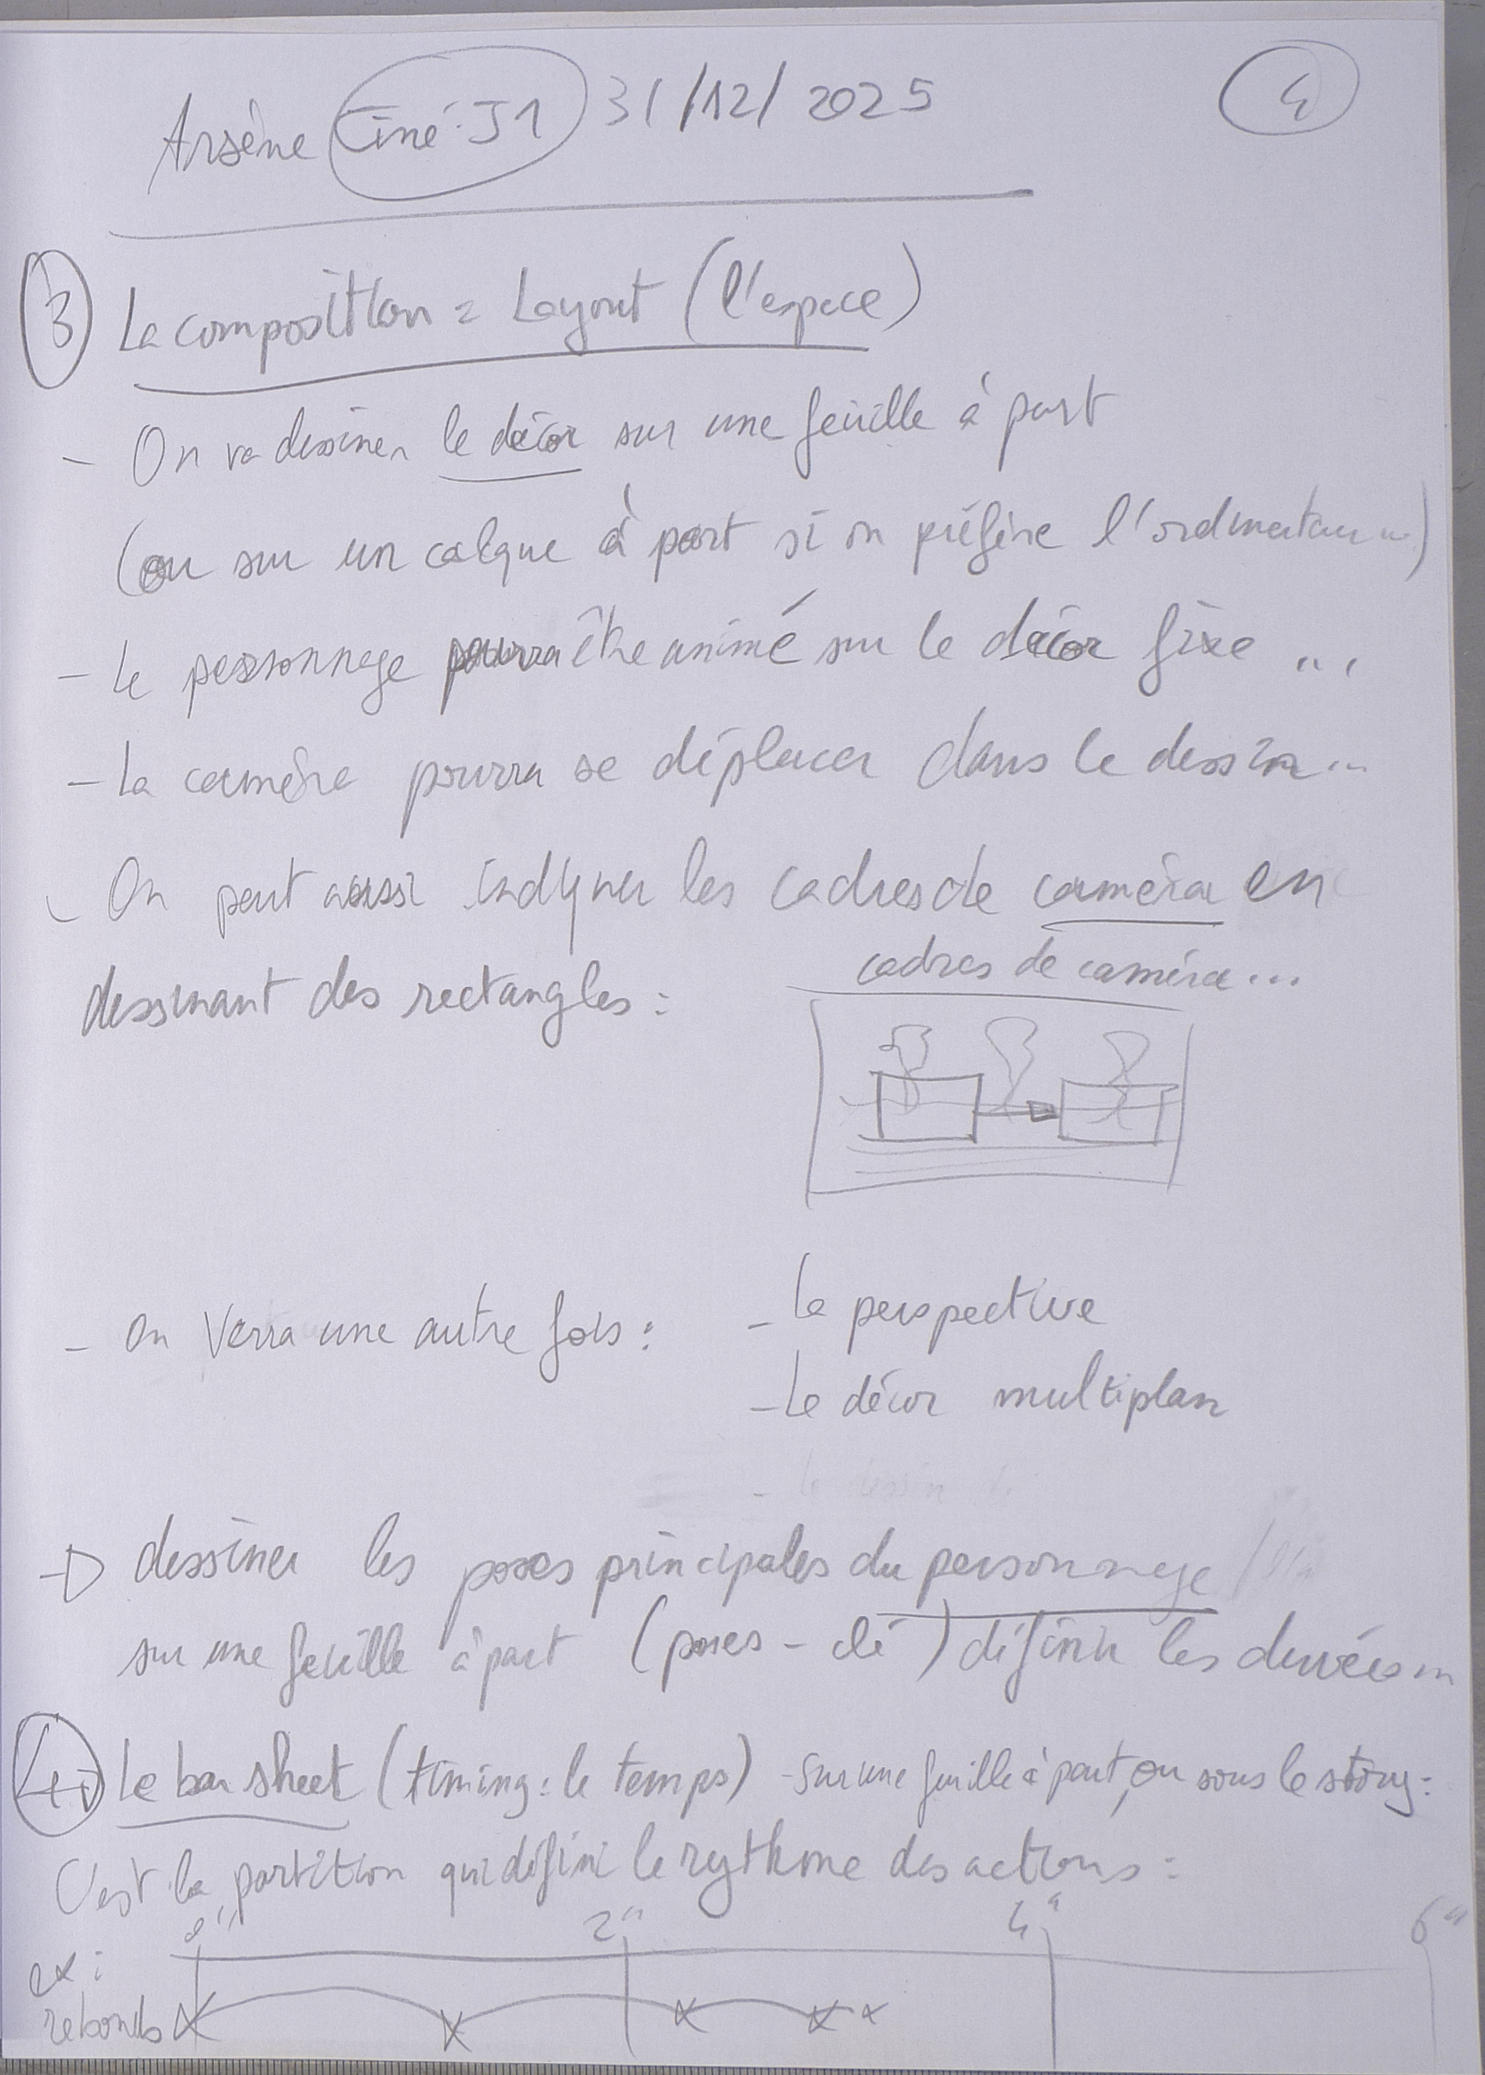 Arsène Ciné-J1 31/12/2025 4
3 La composition = Layout (l'espace)
- On va dessiner le décor sur une feuille à part
(ou sur un calque à part si on préfère l'ordinateur...)
- Le personnage pourra être animé sur le décor fixe ...
- La caméra pourra se déplacer dans le dessin...
- On peut aussi indiquer les cadres de caméra en
dessinant des rectangles :
cadres de caméra...
- On verra une autre fois :
- la perspective
- Le décor multiplan
- le dessin
→ dessiner les poses principales du personnage
sur une feuille à part (poses-clé) définir les durées...
4 Le bar sheet (timing : le temps) - sur une feuille à part, ou sous le story :
C'est la partition qui défini le rythme des actions :
0" 2" 4" 6"
ex :
rebonds